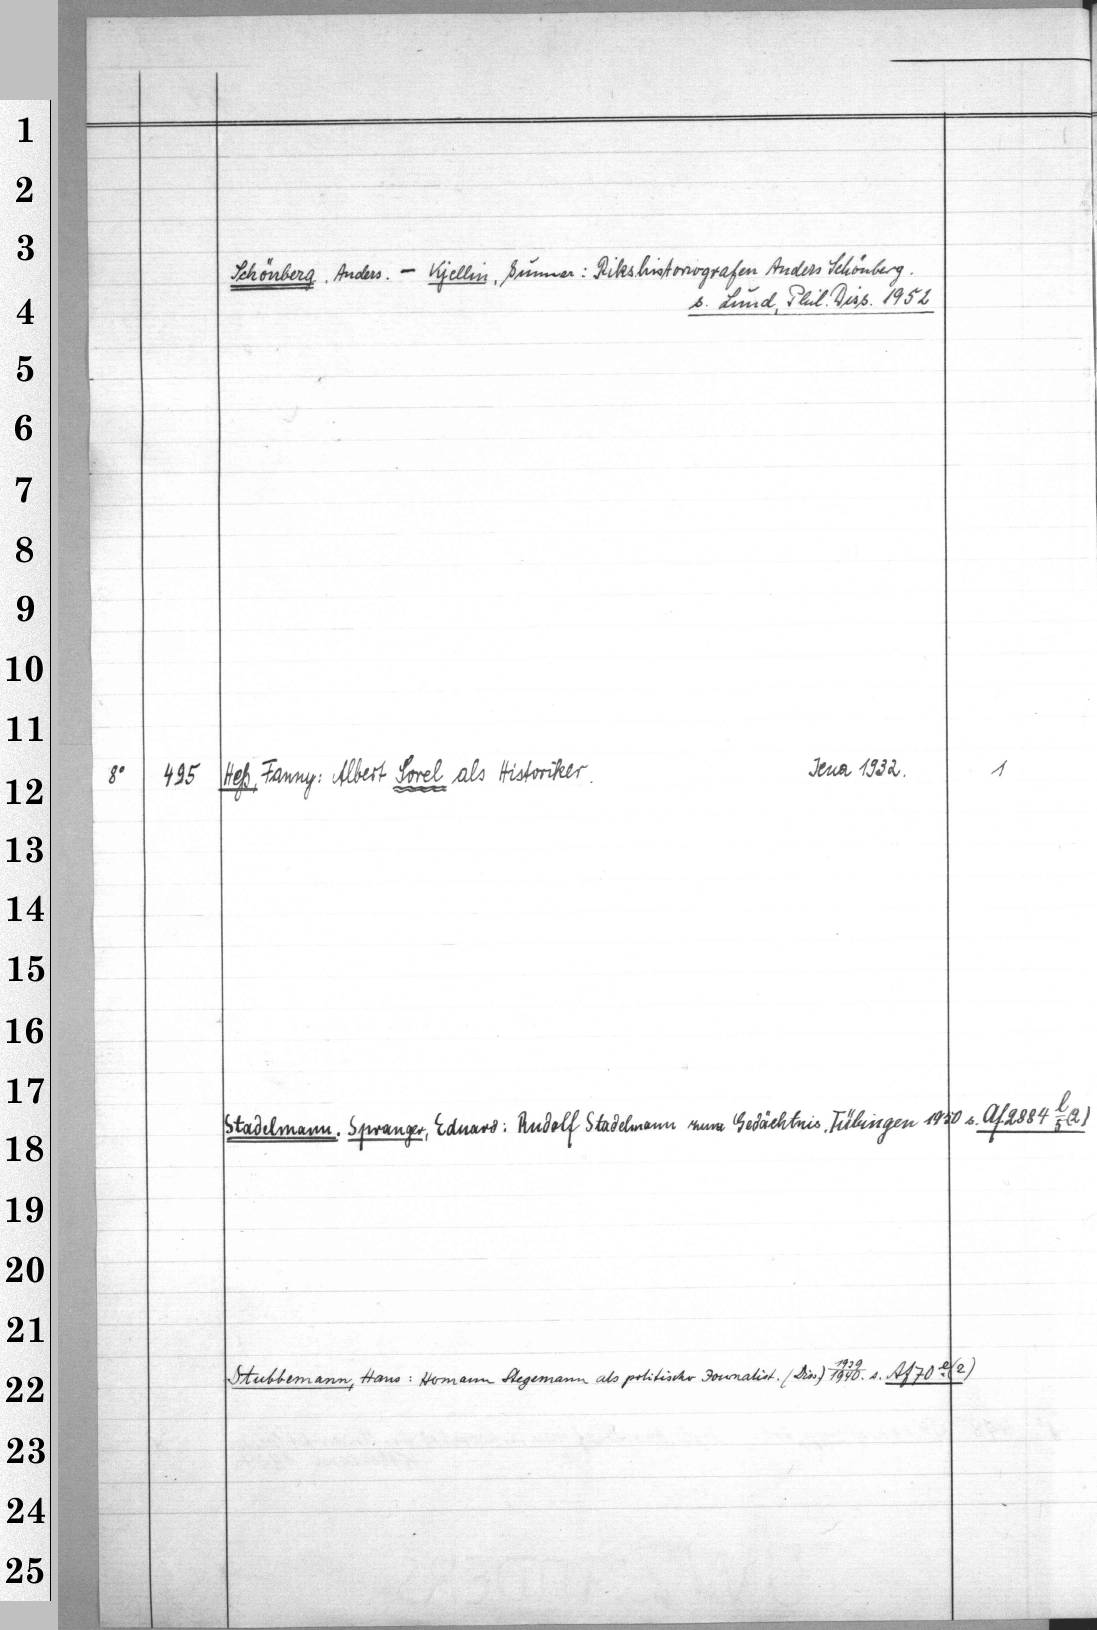 1
2
3
Schönberg, Anders. — Kjellin, Gunnar: Rikshistoriografen Anders Schönberg.
s. Lund, Phil. Diss. 1952
4
5
6
7
8
9
10
11
8° 495 Heß, Fanny: Albert Sorel als Historiker. Jena 1932. 1
12
13
14
15
16
17
Stadelmann. Spranger, Eduard: Rudolf Stadelmann zum Gedächtnis. Tübingen 1950 s. Af 2884 l/5 (2)
18
19
20
21
Stubbemann, Hans: Hermann Stegemann als politischer Journalist. (Diss) 1939/1940. s. Af 70 (2)
22
23
24
25